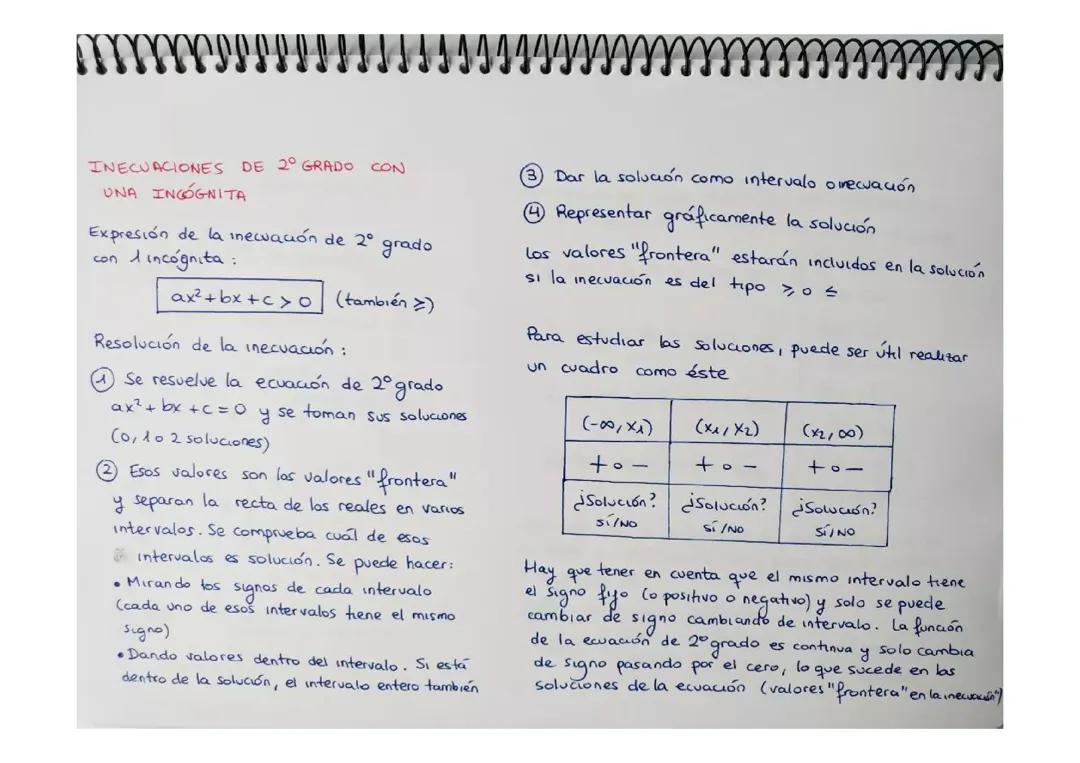 INECUACIONES DE 2º GRADO CON
UNA INCÓGNITA
Expresión de la inecuación de 2º grado
con 1 incógnita:
ax²+bx+c>0 (también ≥)
Resolución de la inecuación:
① Se resuelve la ecuación de 2º grado
ax²+bx+c=0 y se toman sus soluciones
(0, 1 o 2 soluciones)
② Esos valores son los valores "frontera"
y separan la recta de los reales en varios
intervalos. Se comprueba cuál de esos
intervalos es solución. Se puede hacer:
• Mirando los signos de cada intervalo
(cada uno de esos intervalos tiene el mismo
signo)
• Dando valores dentro del intervalo. Si está
dentro de la solución, el intervalo entero también
③ Dar la solución como intervalo o inecuación
④ Representar gráficamente la solución
Los valores "frontera" estarán incluidos en la solución
si la inecuación es del tipo ≥ o ≤
Para estudiar las soluciones, puede ser útil realizar
un cuadro como éste
(-∞, x₁) (x₁, x₂) (x₂, ∞)
+ o - + o - + o -
¿Solución? ¿Solución? ¿Solución?
SÍ/NO SÍ/NO SÍ/NO
Hay que tener en cuenta que el mismo intervalo tiene
el signo fijo (o positivo o negativo) y solo se puede
cambiar de signo cambiando de intervalo. La función
de la ecuación de 2º grado es continua y solo cambia
de signo pasando por el cero, lo que sucede en las
soluciones de la ecuación (valores "frontera" en la inecuación)